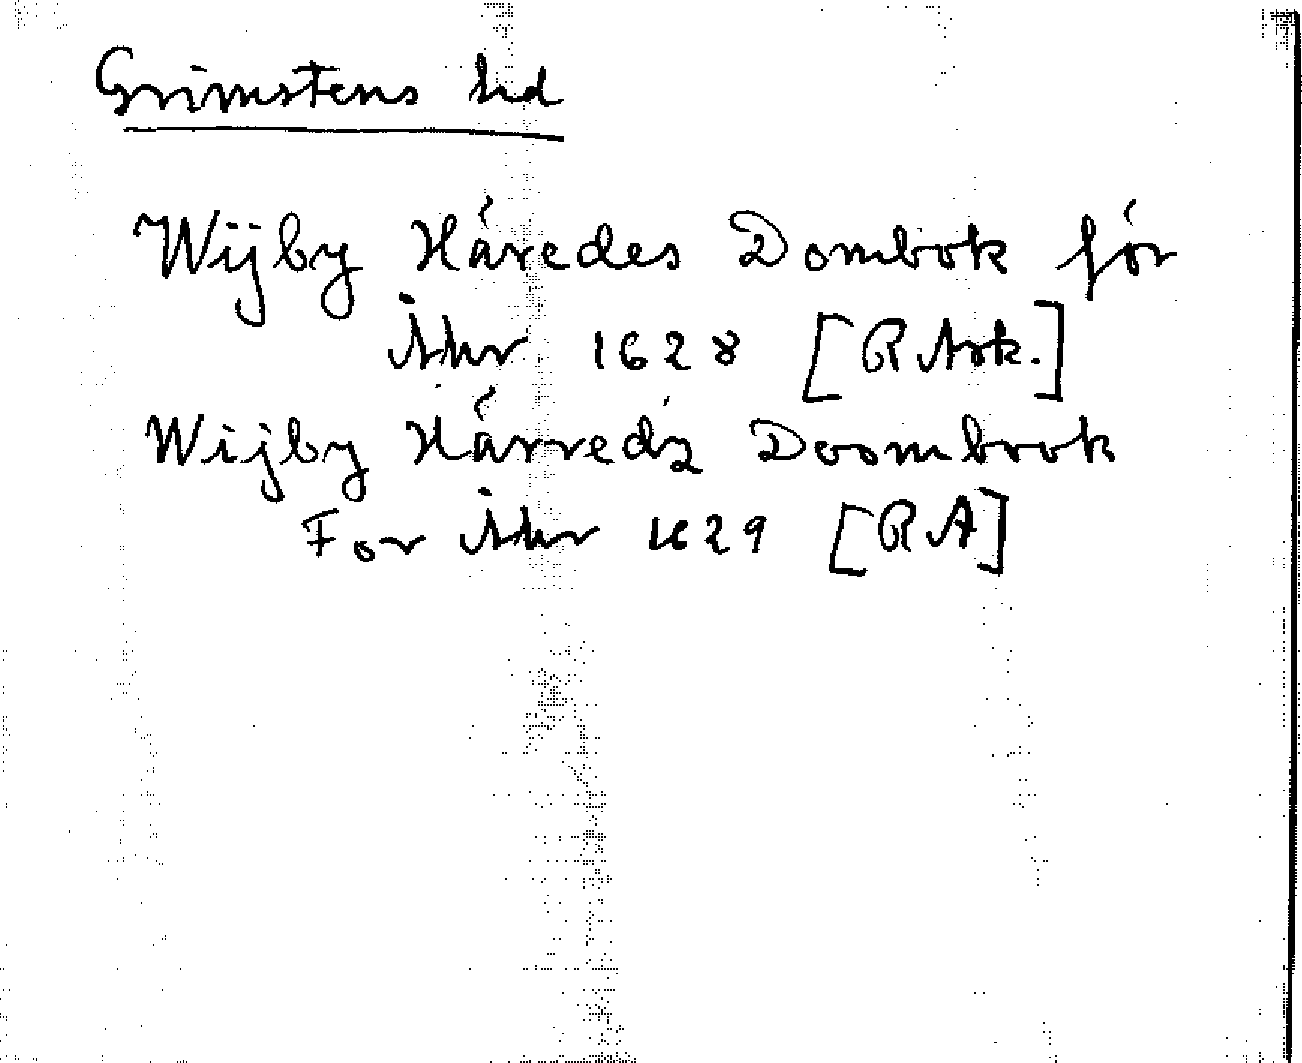 Grimstens hd
Wijby Häredes Dombok för
Åhr 1628 [RArk.]
Wijby Härredz Doombook
For Åhr 1629 [RA]